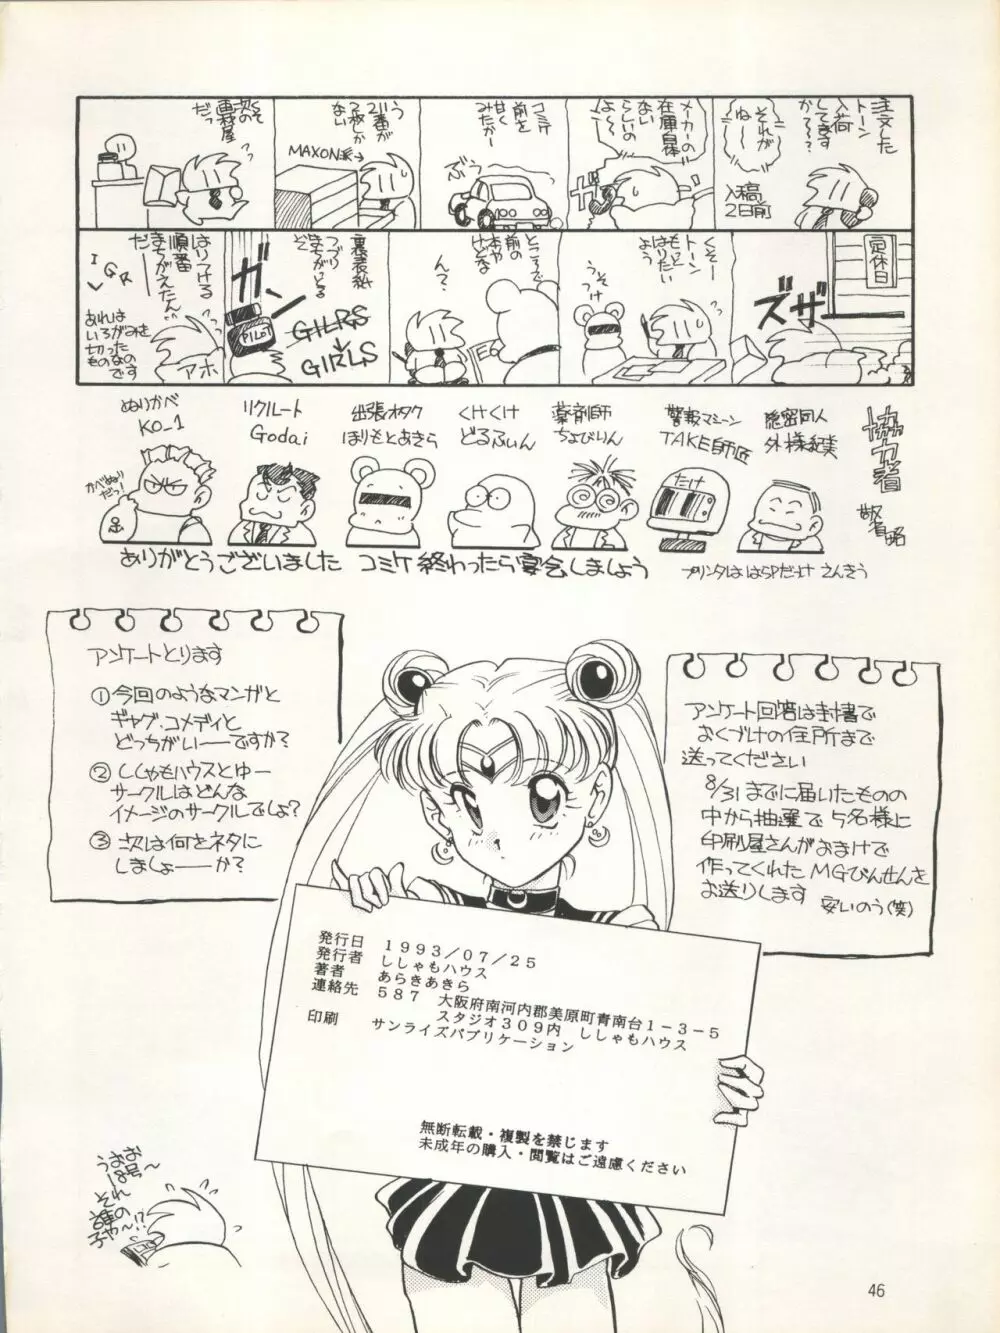 注文した
トーン
入荷
してます
か〜??
それが
ね〜
入稿
2日前
メーカーの
在庫自体
ない
らしいの
よ〜
ガ
コミケ
前を
甘く
みたか
ぶぅー
う
21番が
2枚しか
ない
MAXON系→
くそ
次の
画材屋
だっ
定休日
ズザー
くそー
トーン
もっと
はりたい
よう
うそ
つけ
ところで
前の
本や
けどな
ん?
裏表紙
つづり
まちがっとる
ぞ
ガーン
PILOT
GILRGS
↓
GIRLS
はりつける
順番
まちがえたん
だー
I
G R
あれは
いろがみを
切った
ものなの
です
アホ
協力者
敬省略
隠密同人
外様紀美
警報マシーン
TAKE師匠
たけ
薬剤師
ちょびりん
くけくけ
どるふぃん
出張オタク
ほりもとあきら
リクルート
Godai
ぬりかべ
KO-1
かべぬり
だっ!
ありがとうございました コミケ終わったら宴会しましょう
プリンタははらPだっけ さんきう
アンケートとります
①今回のようなマンガと
ギャグ・コメディと
どっちがい――ですか?
②ししゃもハウスとゆー
サークルはどんな
イメージのサークルでしょ?
③次は何をネタに
しましょ――か?
アンケート回答は封書で
おくづけの住所まで
送ってください
8/31までに届いたものの
中から抽選で5名様に
印刷屋さんがおまけで
作ってくれたMGびんせんを
お送りします 安いのう(笑)
発行日 1993/07/25
発行者 ししゃもハウス
著者 あらきあきら
連絡先 587 大阪府南河内郡美原町青南台1-3-5
スタジオ309内 ししゃもハウス
印刷 サンライズパブリケーション
無断転載・複製を禁じます
未成年の購入・閲覧はご遠慮ください
うおお
18号〜
それ
誰の
子や〜!?
46